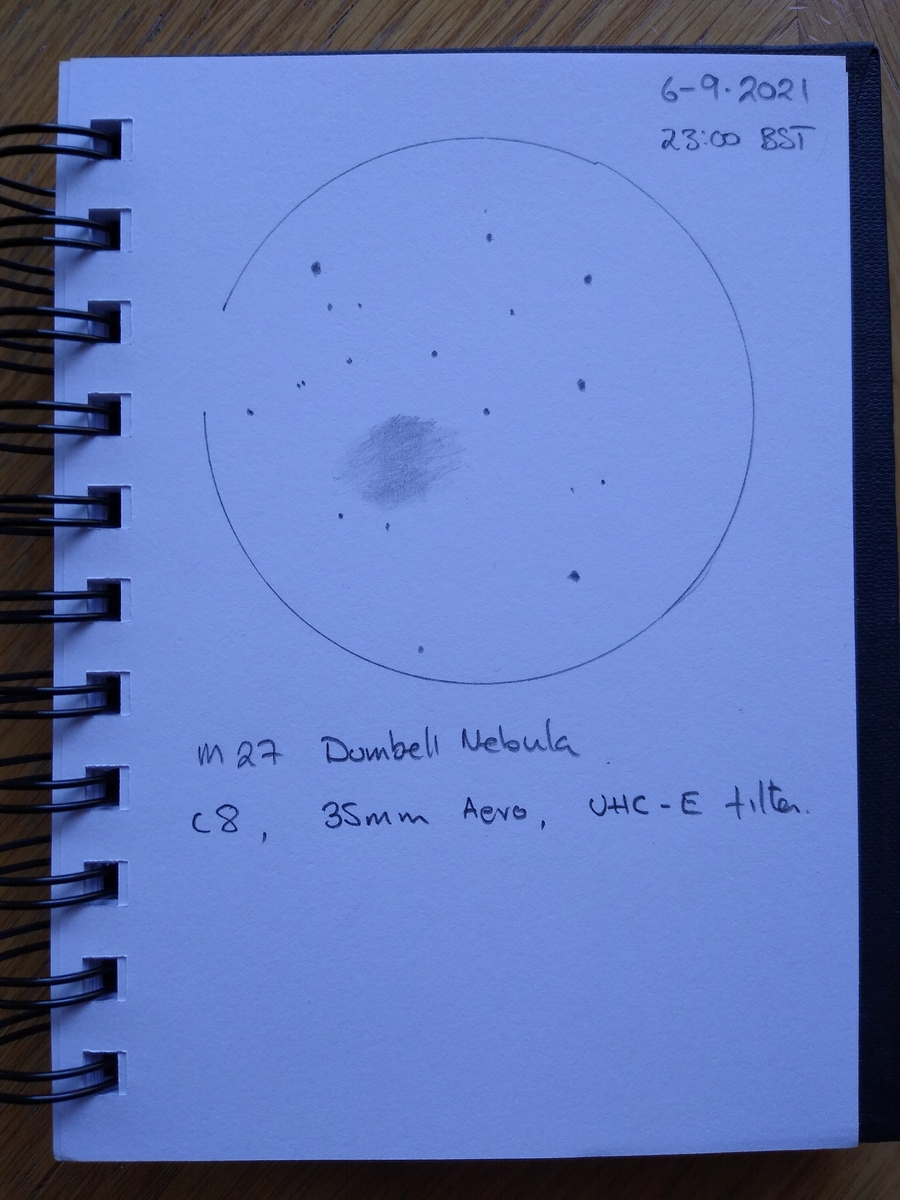 6-9.2021
23:00 BST
M27 Dumbell Nebula
C8, 35mm Aero, UHC-E filter.